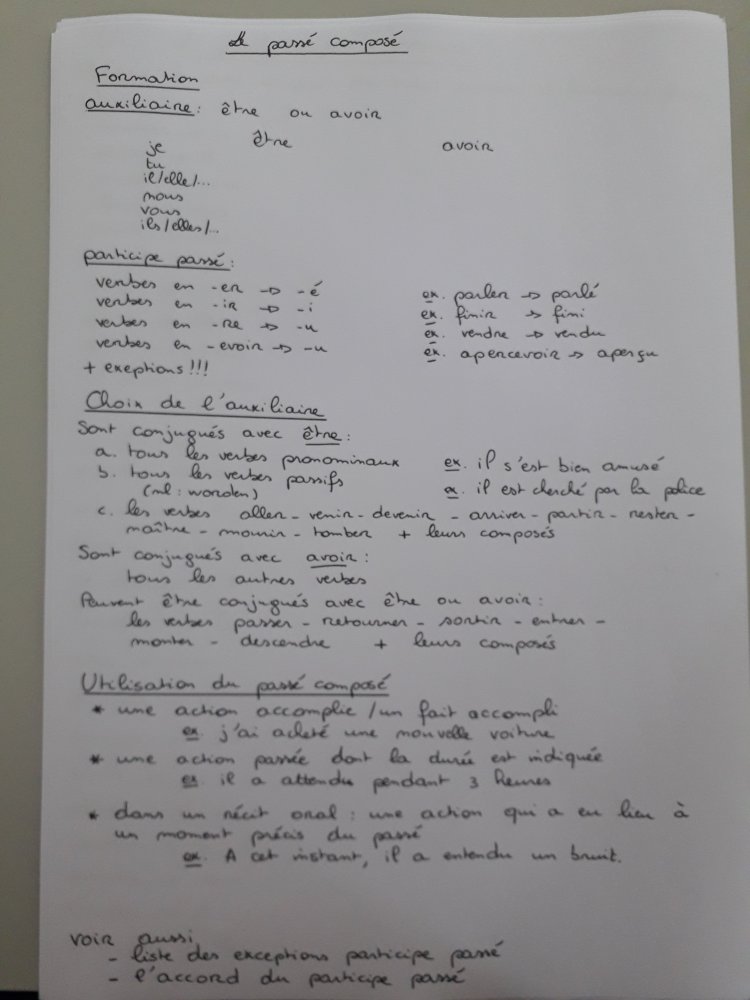 Le passé composé
Formation
auxiliaire : être ou avoir
être avoir
je
tu
il/elle/...
nous
vous
ils/elles/...
participe passé :
verbes en -er → -é ex. parler → parlé
verbes en -ir → -i ex. finir → fini
verbes en -re → -u ex. vendre → vendu
verbes en -evoir → -u ex. apercevoir → aperçu
+ exeptions !!!
Choix de l'auxiliaire
Sont conjugués avec être :
a. tous les verbes pronominaux ex. il s'est bien amusé
b. tous les verbes passifs ex. il est cherché par la police
(nl : worden)
c. les verbes aller - venir - devenir - arriver - partir - rester -
naître - mourir - tomber + leurs composés
Sont conjugués avec avoir :
tous les autres verbes
Peuvent être conjugués avec être ou avoir :
les verbes passer - retourner - sortir - entrer -
monter - descendre + leurs composés
Utilisation du passé composé
* une action accomplie / un fait accompli
ex. j'ai acheté une nouvelle voiture
* une action passée dont la durée est indiquée
ex. il a attendu pendant 3 heures
* dans un récit oral : une action qui a eu lieu à
un moment précis du passé
ex. A cet instant, il a entendu un bruit.
voir aussi
- liste des exceptions participe passé
- l'accord du participe passé